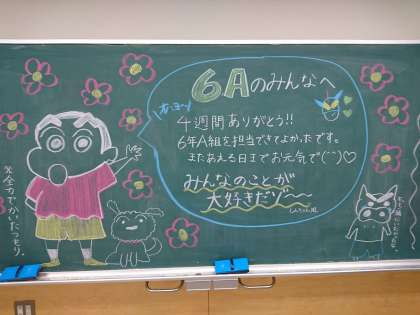 6Aのみんなへ
4週間ありがとう!!
6年A組を担当できてよかったです。
またあえる日までお元気で(^^)♡
みんなのことが
大好きだゾ〜
しんちゃん風
※全力でかいたつもり。